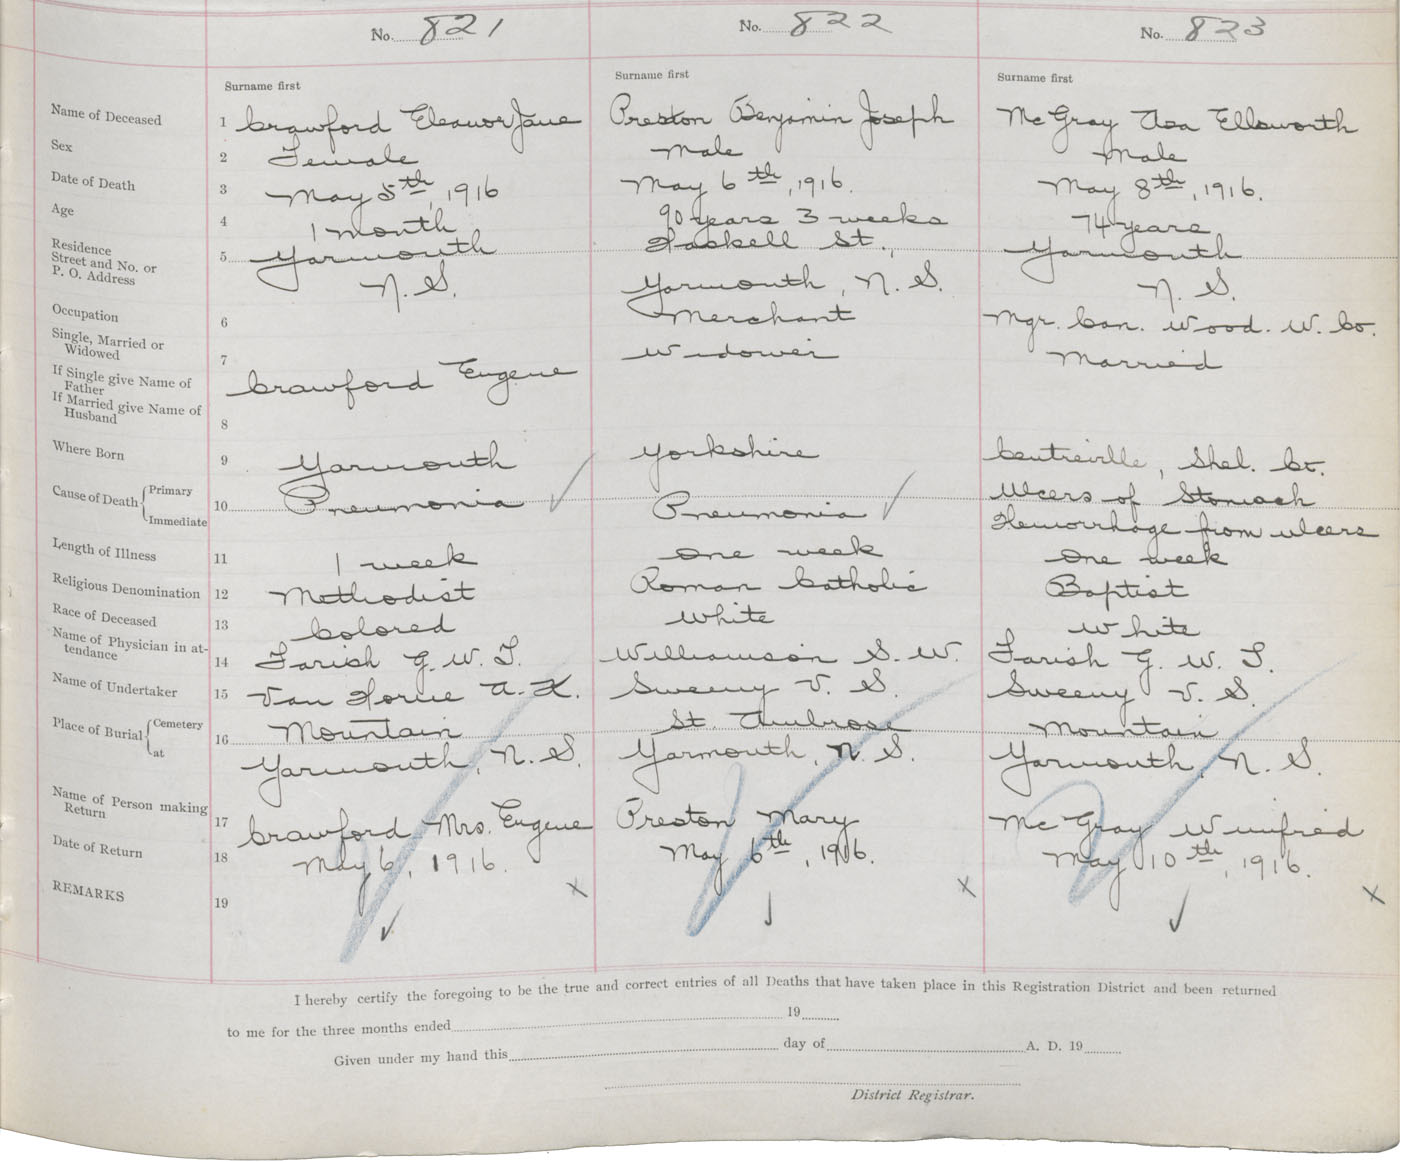 No. 821
No. 822
No. 823
Surname first
Surname first
Surname first
Name of Deceased
1 Crawford Eleanor Jane
Preston Benjamin Joseph
McGray Asa Ellsworth
Sex
2 Female
Male
Male
Date of Death
3 May 5th, 1916
May 6th, 1916.
May 8th, 1916.
Age
4 1 month
90 years 3 weeks
74 years
Residence
Street and No. or
P. O. Address
5 Yarmouth
N. S.
Haskell St.,
Yarmouth, N. S.
Yarmouth
N. S.
Occupation
6
Merchant
Mgr. Can. Wood. W. Co.
Single, Married or
Widowed
7
Widower
Married
If Single give Name of
Father
If Married give Name of
Husband
Crawford Eugene
8
Where Born
9 Yarmouth
Yorkshire
Centreville, Shel. Co.
Cause of Death { Primary
Immediate
10 Pneumonia ✓
Pneumonia ✓
Ulcers of Stomach
Hemorrhage from ulcers
Length of Illness
11 1 week
One week
One week
Religious Denomination
12 Methodist
Roman Catholic
Baptist
Race of Deceased
13 Colored
White
White
Name of Physician in at-
tendance
14 Farish G. W. T.
Williamson S. W.
Farish G. W. T.
Name of Undertaker
15 Van Horne A. K.
Sweeny V. S.
Sweeny V. S.
Place of Burial { Cemetery
at
16 Mountain
Yarmouth, N. S.
St. Ambrose
Yarmouth, N. S.
Mountain
Yarmouth, N. S.
Name of Person making
Return
17 Crawford Mrs. Eugene
Preston Mary
McGray Winifred
Date of Return
18 May 6, 1916.
May 6th, 1916.
May 10th, 1916.
REMARKS
19
x
x
x
✓
✓
✓
I hereby certify the foregoing to be the true and correct entries of all Deaths that have taken place in this Registration District and been returned
to me for the three months ended 19
Given under my hand this day of A. D. 19
District Registrar.